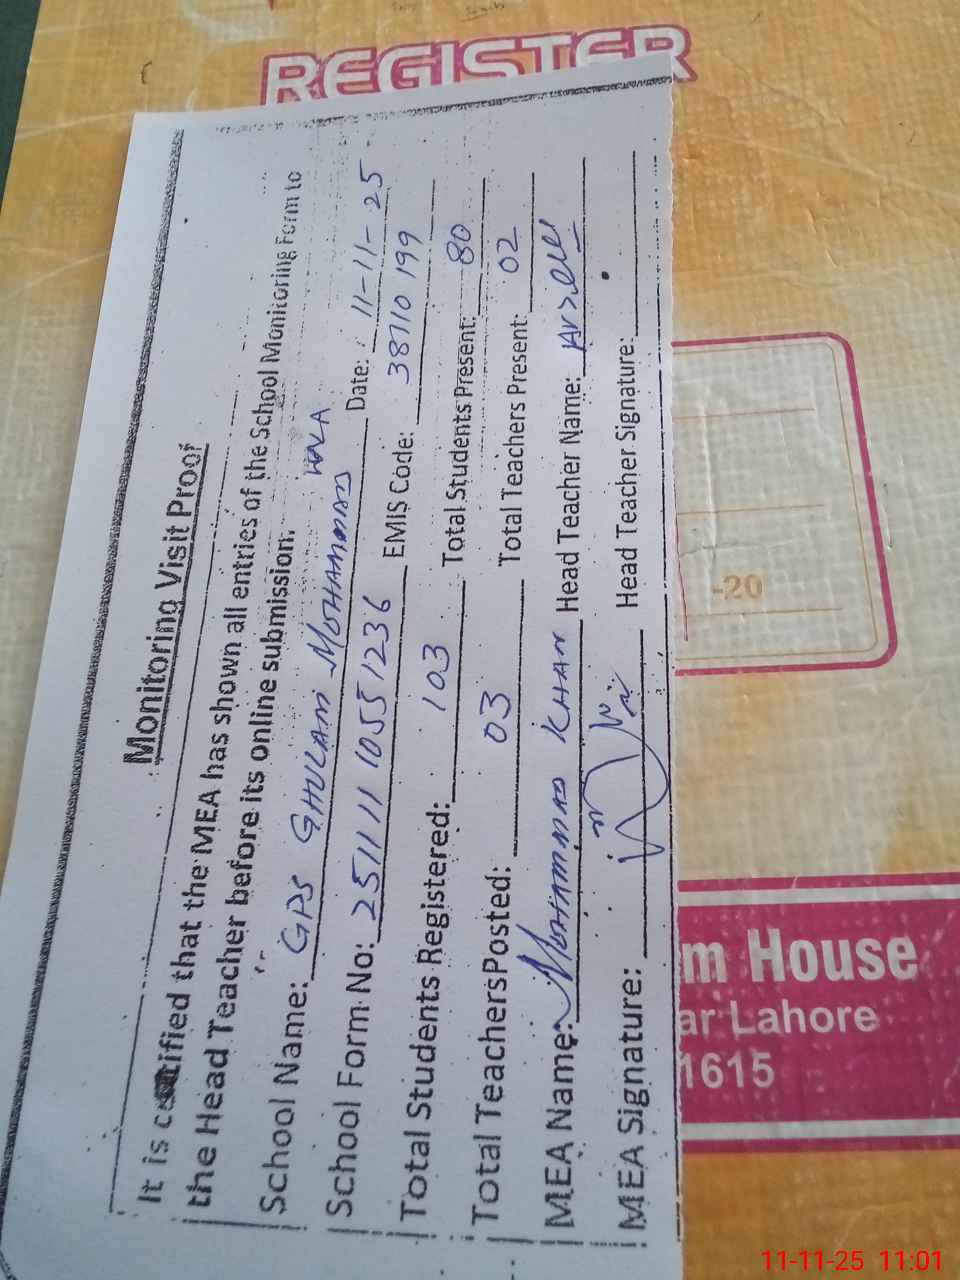 REGISTER
Monitoring Visit Proof
It is certified that the MEA has shown all entries of the School Monitoring Form to
the Head Teacher before its online submission.
School Name: GPS GHULAM MOHAMMAD Date: 11-11-25
School Form No: 251111 1055 1236 EMIS Code: 38110 199
Total Students Registered: 103 Total Students Present: 80
Total Teachers Posted: 03 Total Teachers Present: 02
MEA Name: MOHAMMAD KHAN Head Teacher Name:
MEA Signature: Head Teacher Signature:
-20
m House
ar Lahore
1615
11-11-25 11:01